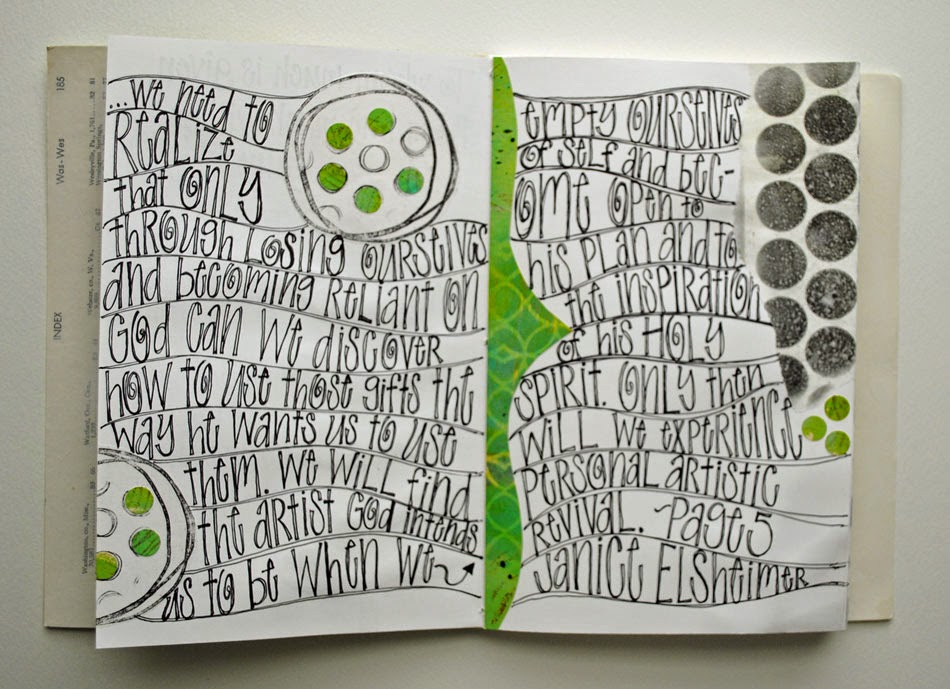 ...we need to
REALIZE
that ONLY
through LOSING OURSELVES
and becoming RELIANT ON
GOD CAN WE discover
how to use those gifts the
way he wants us to use
them. We WILL find
the ARTIST GOD intends
us to be when we
empty OURSELVES
of self and bec-
ome open to
his plan and to
the inspiration
of his HOLY
SPIRIT. ONLY then
WILL WE EXPERIENCE
personal artistic
REVIVAL. ~Page 5
Janice Elsheimer
185
Was-Wes
INDEX